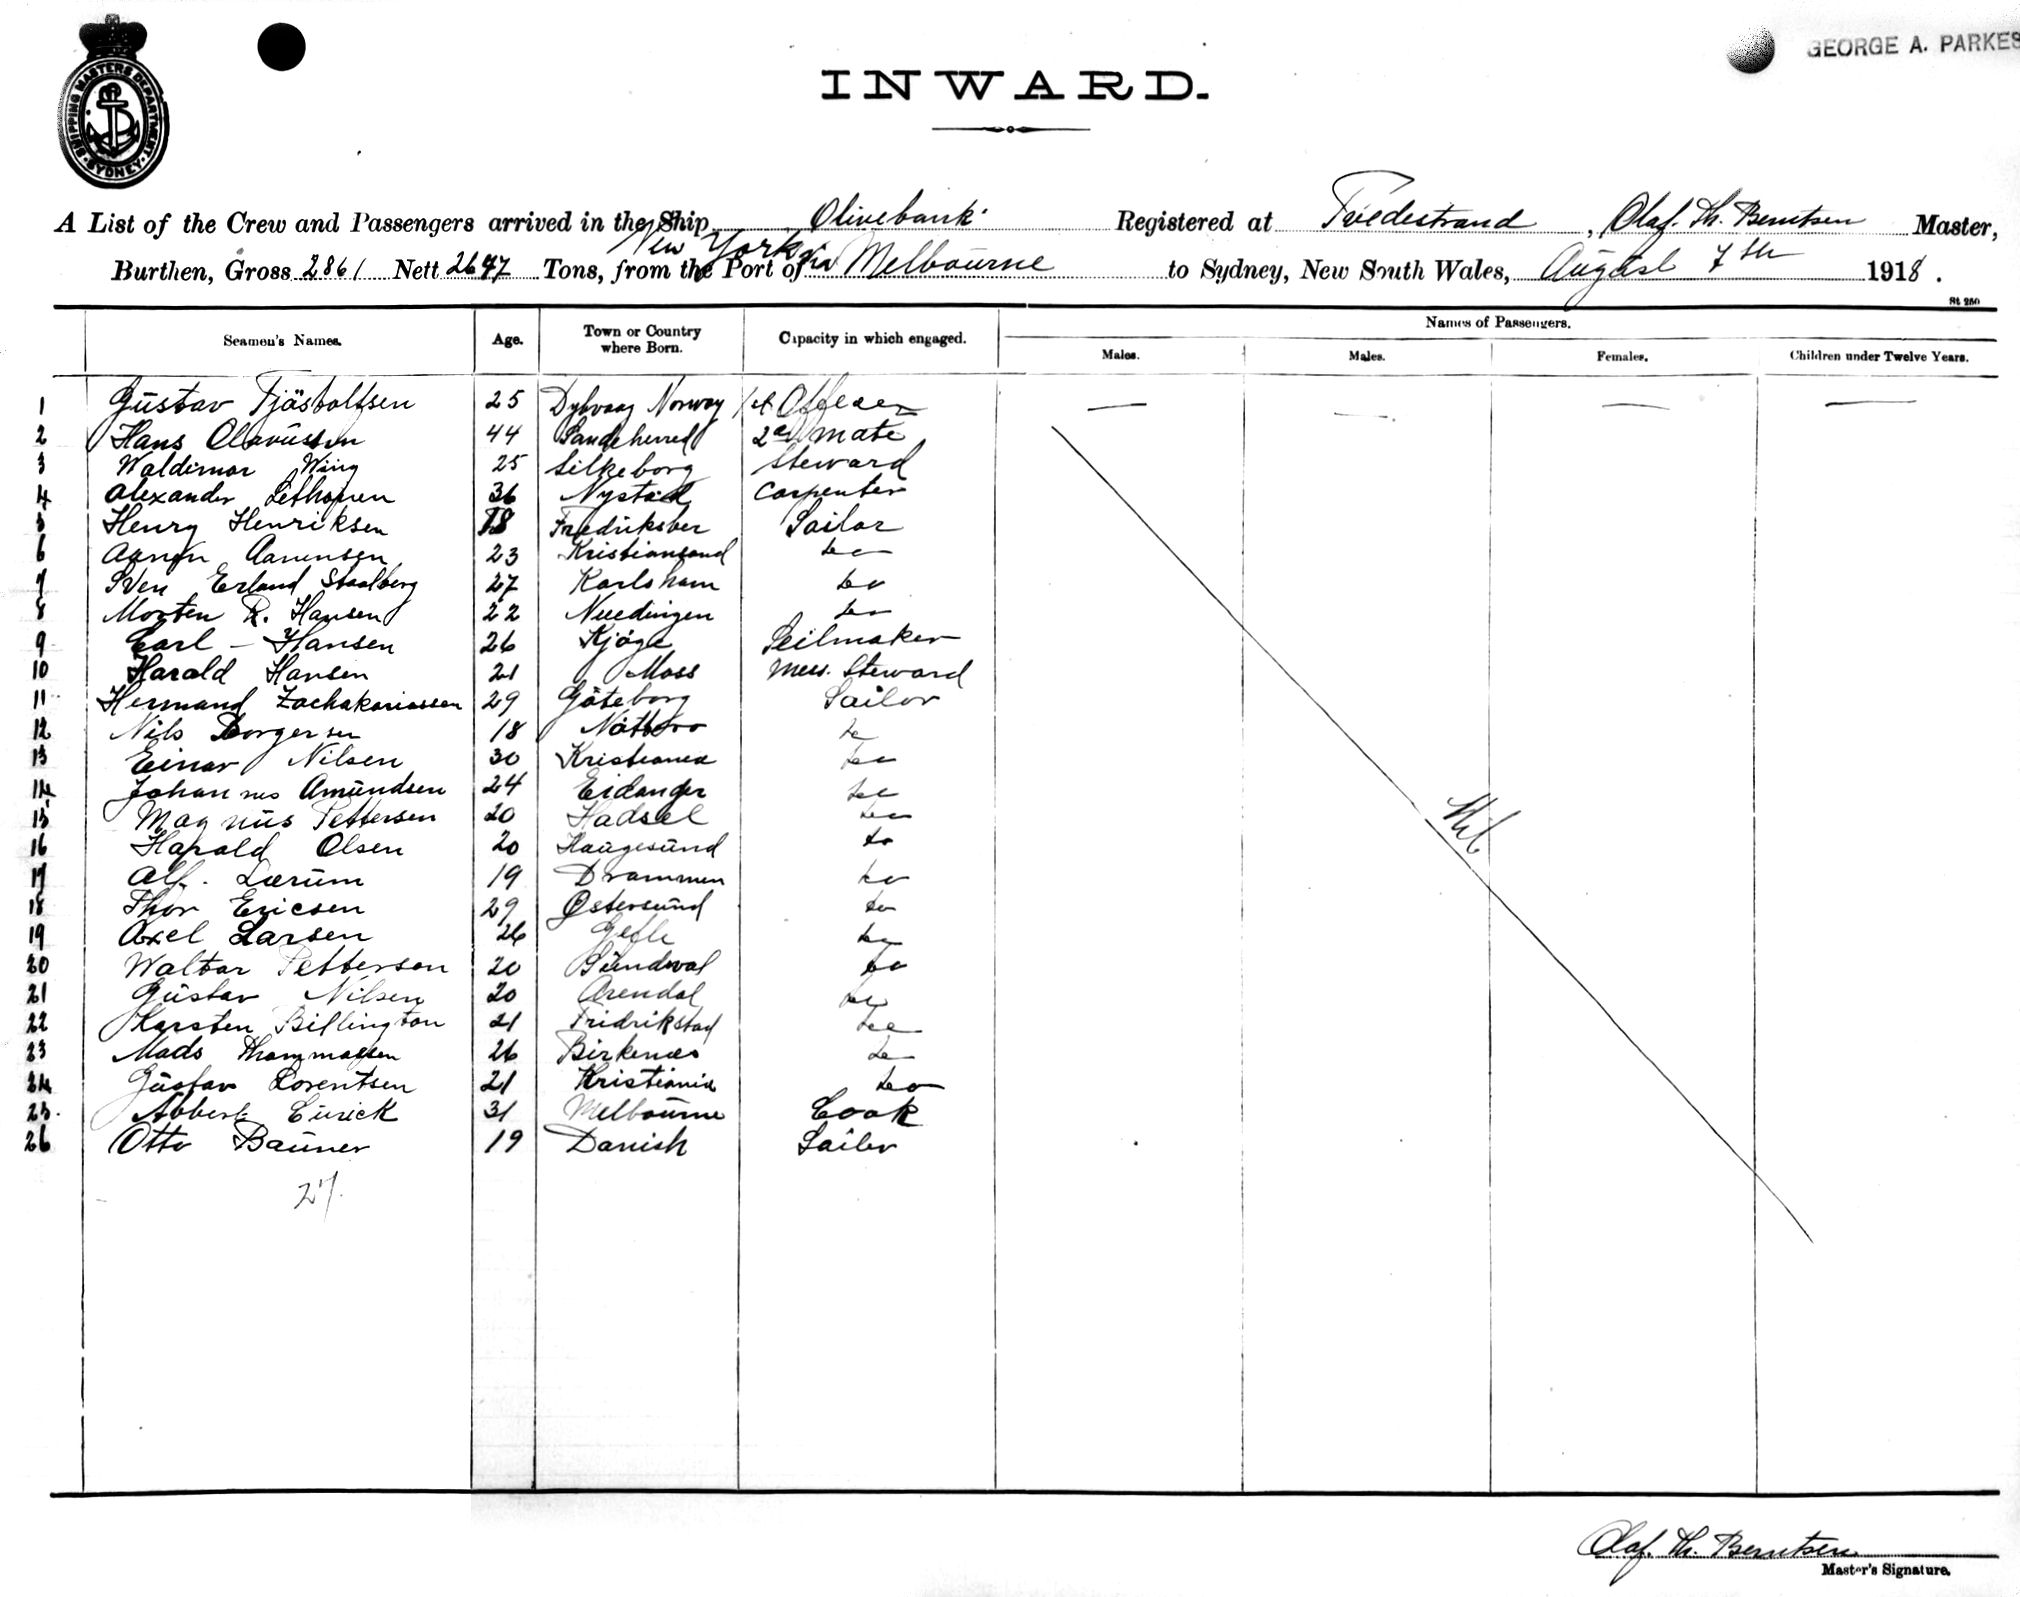 SHIPPING MASTERS DEPARTMENT · SYDNEY ·
GEORGE A. PARKES
INWARD.
A List of the Crew and Passengers arrived in the Ship Olivebank Registered at Tvedestrand, Olaf. Th. Berntsen Master,
New York via
Burthen, Gross 2861 Nett 2647 Tons, from the Port of Melbourne to Sydney, New South Wales, August 7th 1918.
St 250
Seamen's Names. Age. Town or Country where Born. Capacity in which engaged. Names of Passengers.
Males. Males. Females. Children under Twelve Years.
1 Gustav Tjösboltsen 25 Dybvaag Norway 1st Officer
2 Hans Olavussen 44 Sandeherred 2nd mate
3 Waldimar Wiig 25 Silkeborg Steward
4 Alexander 36 Nystad Carpenter
5 Henry Henriksen 18 Fredriksber Sailor
6 Aanensen 23 Kristiansand do
7 Sven Erland Staalberg 27 Karlsham do
8 Morten R. Hansen 22 do
9 Carl - Hansen 26 Kjöge Seilmaker
10 Harald Hansen 21 Moss Mess. Steward
11 Hermand Zachakariassen 29 Göteborg Sailor
12 Nils Borgersen 18 Nötterö do
13 Einar Nilsen 30 Kristiania do
14 Johannes Amundsen 24 Eidanger do
15 Magnus Pettersen 20 Hadsel do
16 Harald Olsen 20 Haugesund do
17 Alf. Lærum 19 Drammen do
18 Thor Ericsen 29 Østersund do
19 Axel Larsen 26 Gefle do
20 Walter Petterson 20 Sundsval do
21 Gustav Nilsen 20 Arendal do
22 Karsten Billington 21 Fridrikstad do
23 Mads Thommassen 26 Birkenæs do
24 Gustav Lorentsen 21 Kristiania do
25 Albert 31 Melbourne Cook
26 Otto Bauner 19 Danish Sailor
Nil
27.
Olaf. Th. Berntsen
Master's Signature.